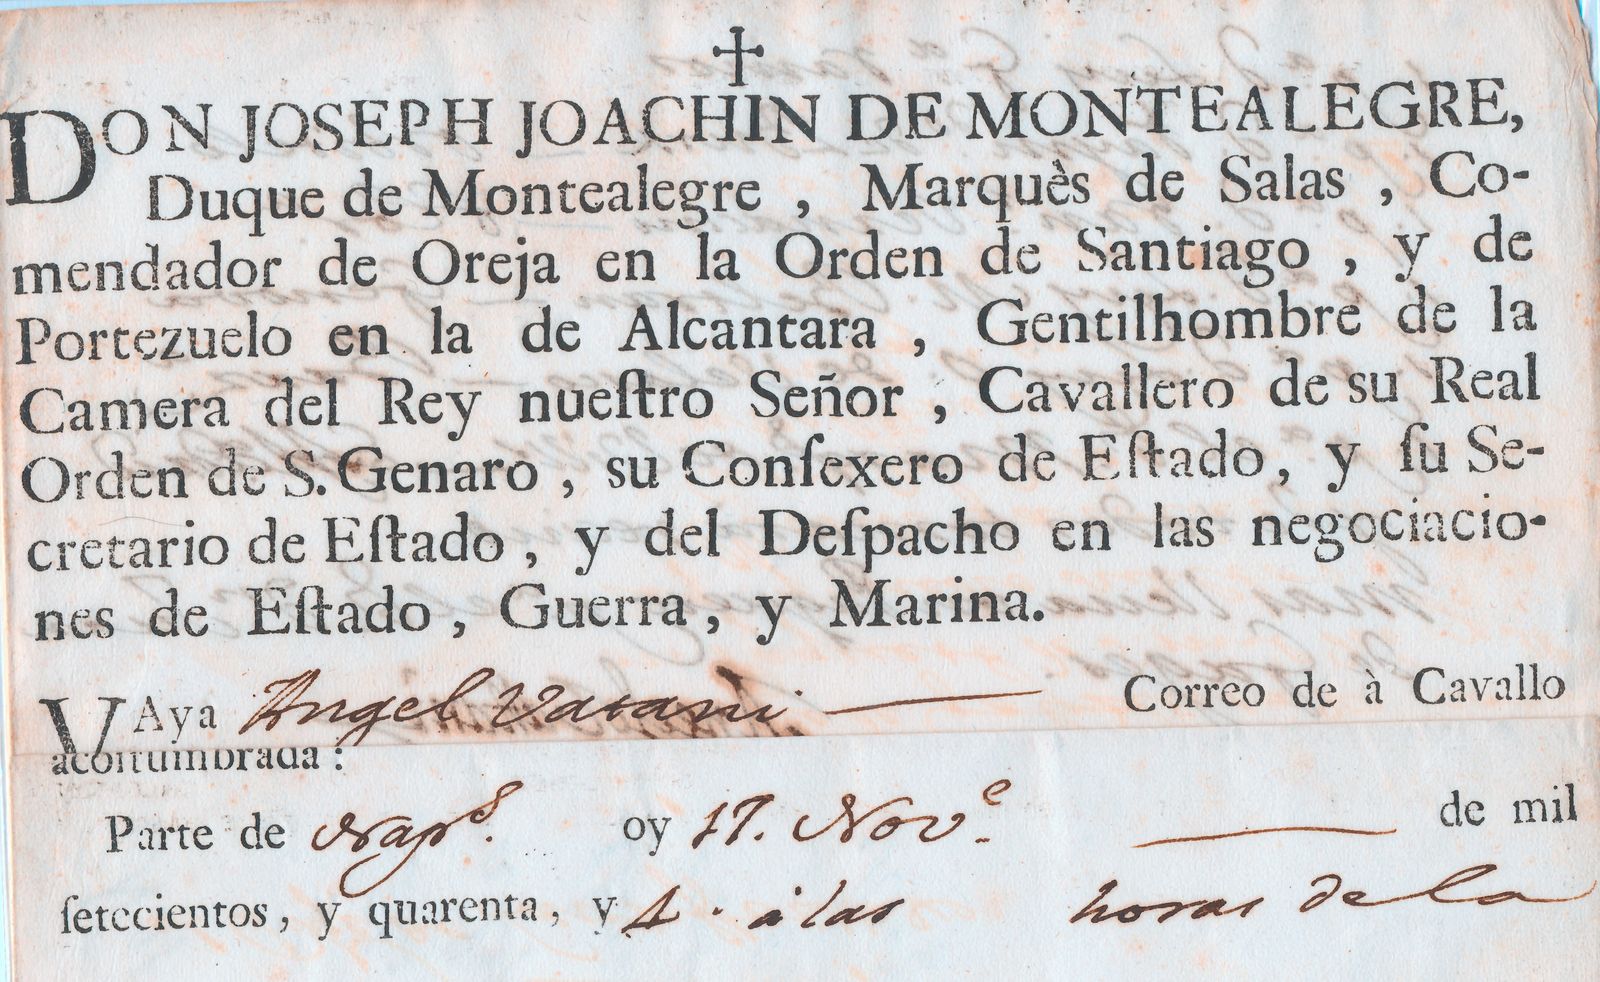 DON JOSEPH JOACHIN DE MONTEALEGRE,
Duque de Montealegre , Marquès de Salas , Co-
mendador de Oreja en la Orden de Santiago , y de
Portezuelo en la de Alcantara , Gentilhombre de la
Camera del Rey nueſtro Señor , Cavallero de su Real
Orden de S. Genaro , su Conſexero de Eſtado, y ſu Se-
cretario de Eſtado , y del Deſpacho en las negociacio-
nes de Eſtado , Guerra, y Marina.
VAya Angel Vatani Correo de à Cavallo
acoſtumbrada :
Parte de Nap.s oy 17. Nov.e de mil
ſetecientos, y quarenta, y 4. à las horas de la